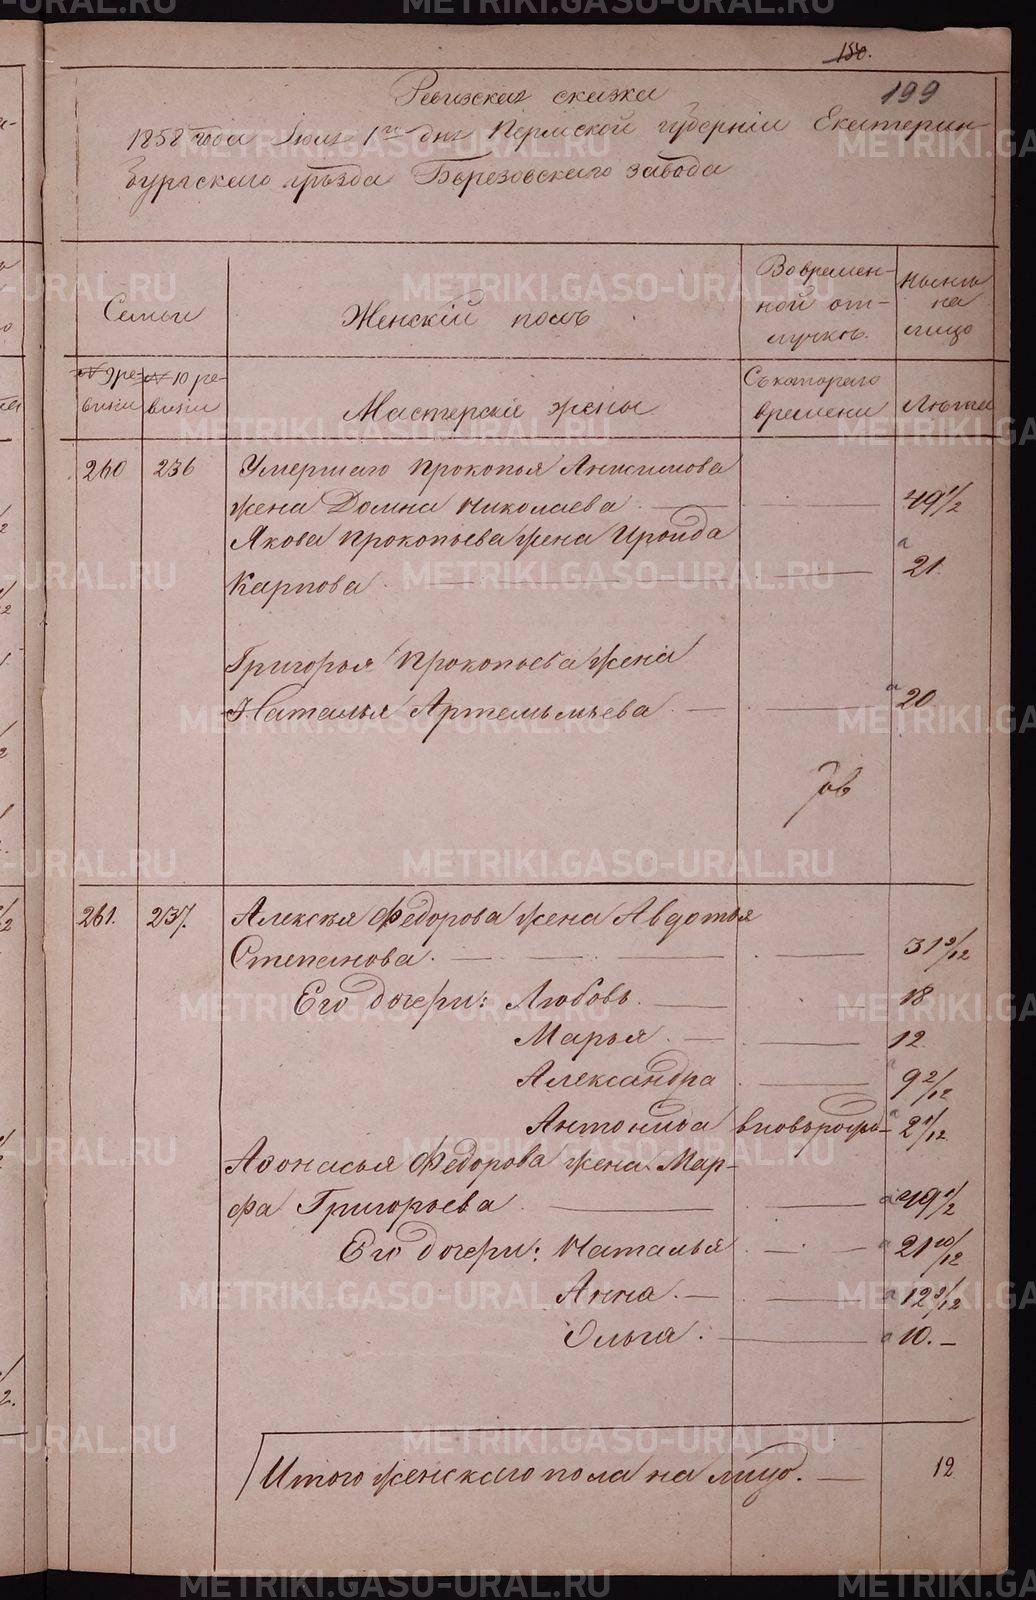 150.
199
Ревизская сказка
1858 года Июля 1го дня Пермской губерніи Екатерин-
бургскаго уѣзда Березовскаго завода
Семьи
Женскій полъ
Во времен-
ной от-
лучкѣ.
Нынѣ
на
лицо
№ 9 ре-
визіи
№ 10 ре-
визіи
Мастерскіе жены
Съ котораго
времени
Лѣта
260 236 Умершаго Прокопья
жена Домна Николаева 49 1/2
Якова Прокопьева жена Ироида
Карпова 21.
Григорья Прокопьева жена
Наталья Артемьева 20
261. 237. Алексѣя Федорова жена Авдотья
Степанова. 31 9/12
Его дочери: Любовь. 18
Марья. 12.
Александра 9 2/12
Антонида вновьрожд- 2 1/12
Аѳонасья Федорова жена Мар-
фа Григорьева 49 1/2
Его дочери: Наталья 21 10/12
Анна. 12 3/12
Ольга. 10.
Итого женскаго пола на лицо. 12
METRIKI.GASO-URAL.RU